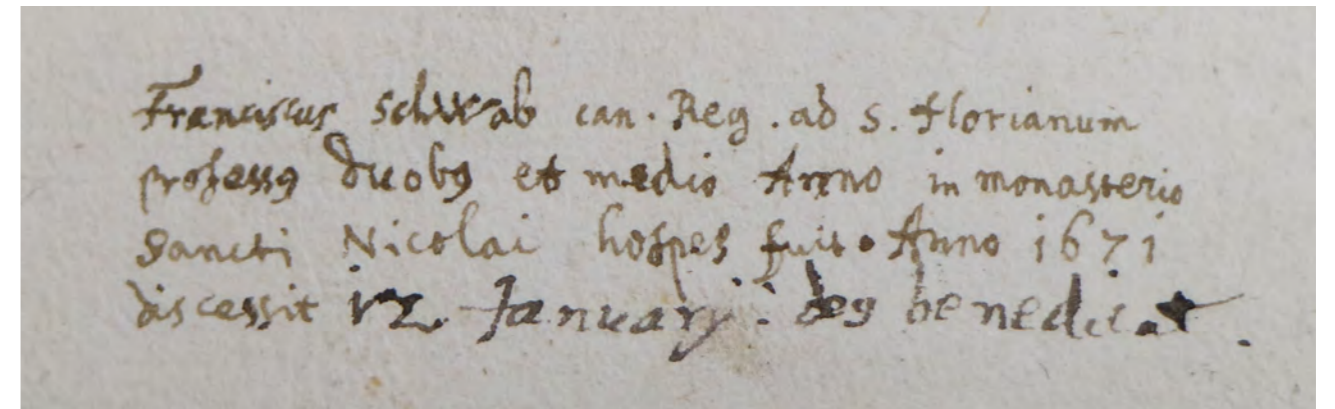 Franciscus Schwab can. Reg. ad S. Florianum
professꝰ duobꝰ et medio Anno in monasterio
Sancti Nicolai hospes fuit. Anno 1671
discessit 12 Januarij. deꝰ benedicat.